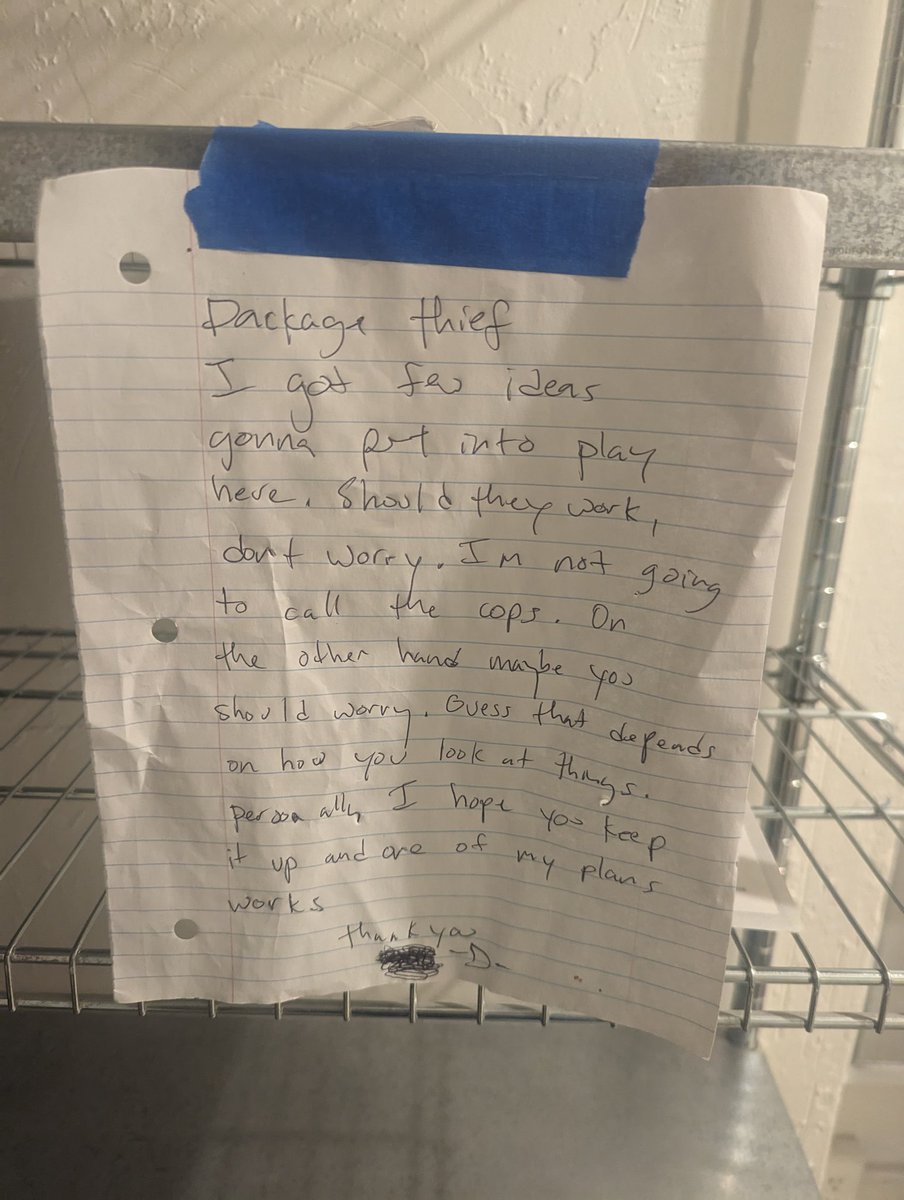 Package thief
I got few ideas
gonna put into play
here. Should they work,
don't worry. I'm not going
to call the cops. On
the other hand maybe you
should worry. Guess that depends
on how you look at things.
personally, I hope you keep
it up and one of my plans
works
thank you
-D-